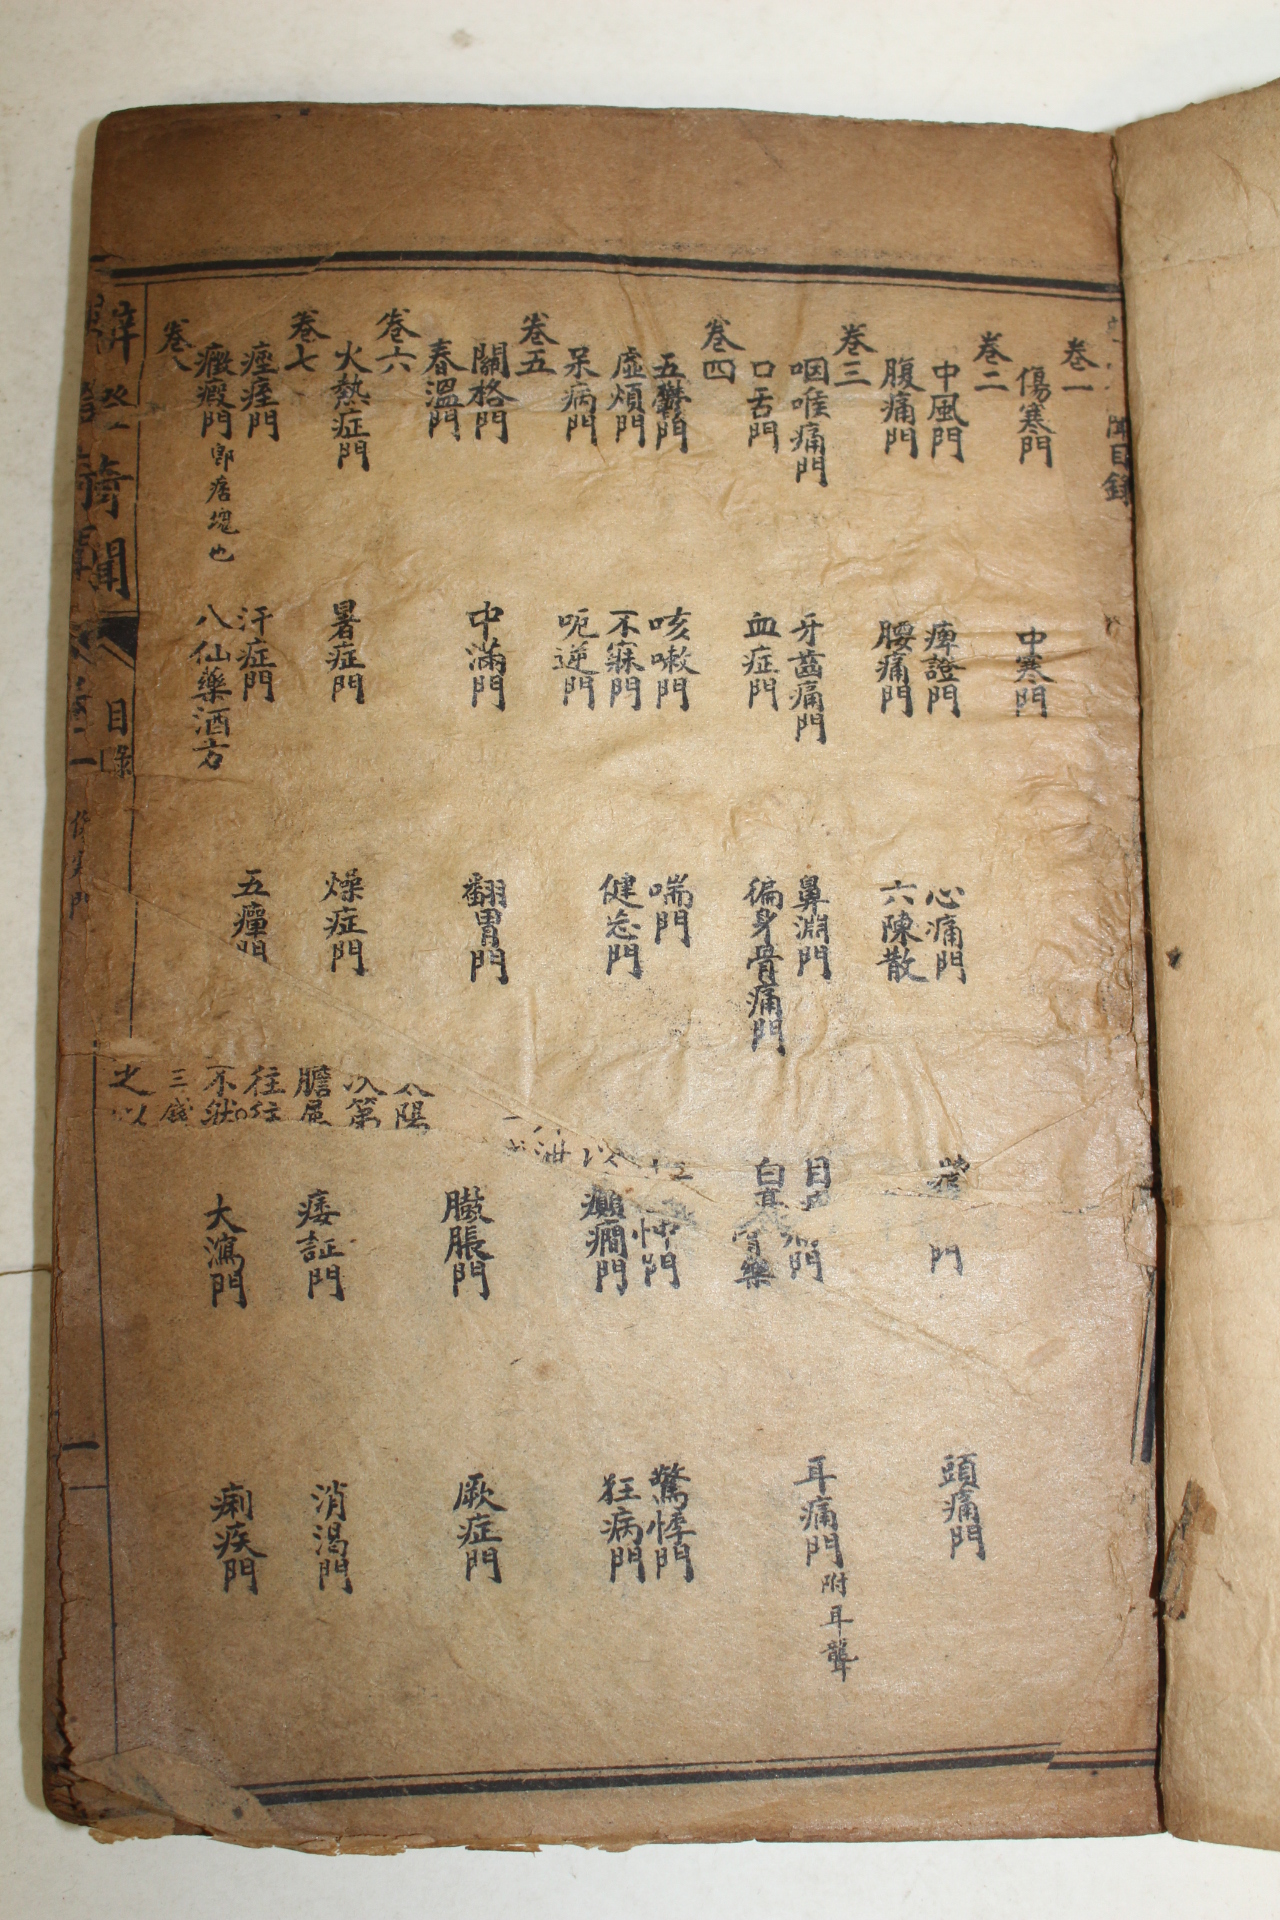 聞目錄
卷一
傷寒門 中寒門
卷二
中風門 痺證門 心痛門 門 頭痛門
腹痛門 腰痛門 六陳散
卷三
咽喉痛門 牙齒痛門 鼻淵門 目 門 耳痛門 附耳聾
口舌門 血症門 徧身骨痛門
卷四
五鬱門 咳嗽門 喘門 忡門 驚悸門
虛煩門 不寐門 健忘門 癲癇門 狂病門
呆病門 呃逆門
卷五
關格門 中滿門 翻胃門 臌脹門 厥症門
春溫門
卷六
火熱症門 暑症門 燥症門 痿証門 消渴門
卷七
痙痓門 汗症門 五癉門 大瀉門 痢疾門
癥瘕門 即痞塊也 八仙藥酒方
卷八
奇聞 目錄
陽
次第
膽
往往
不然
三錢
之以